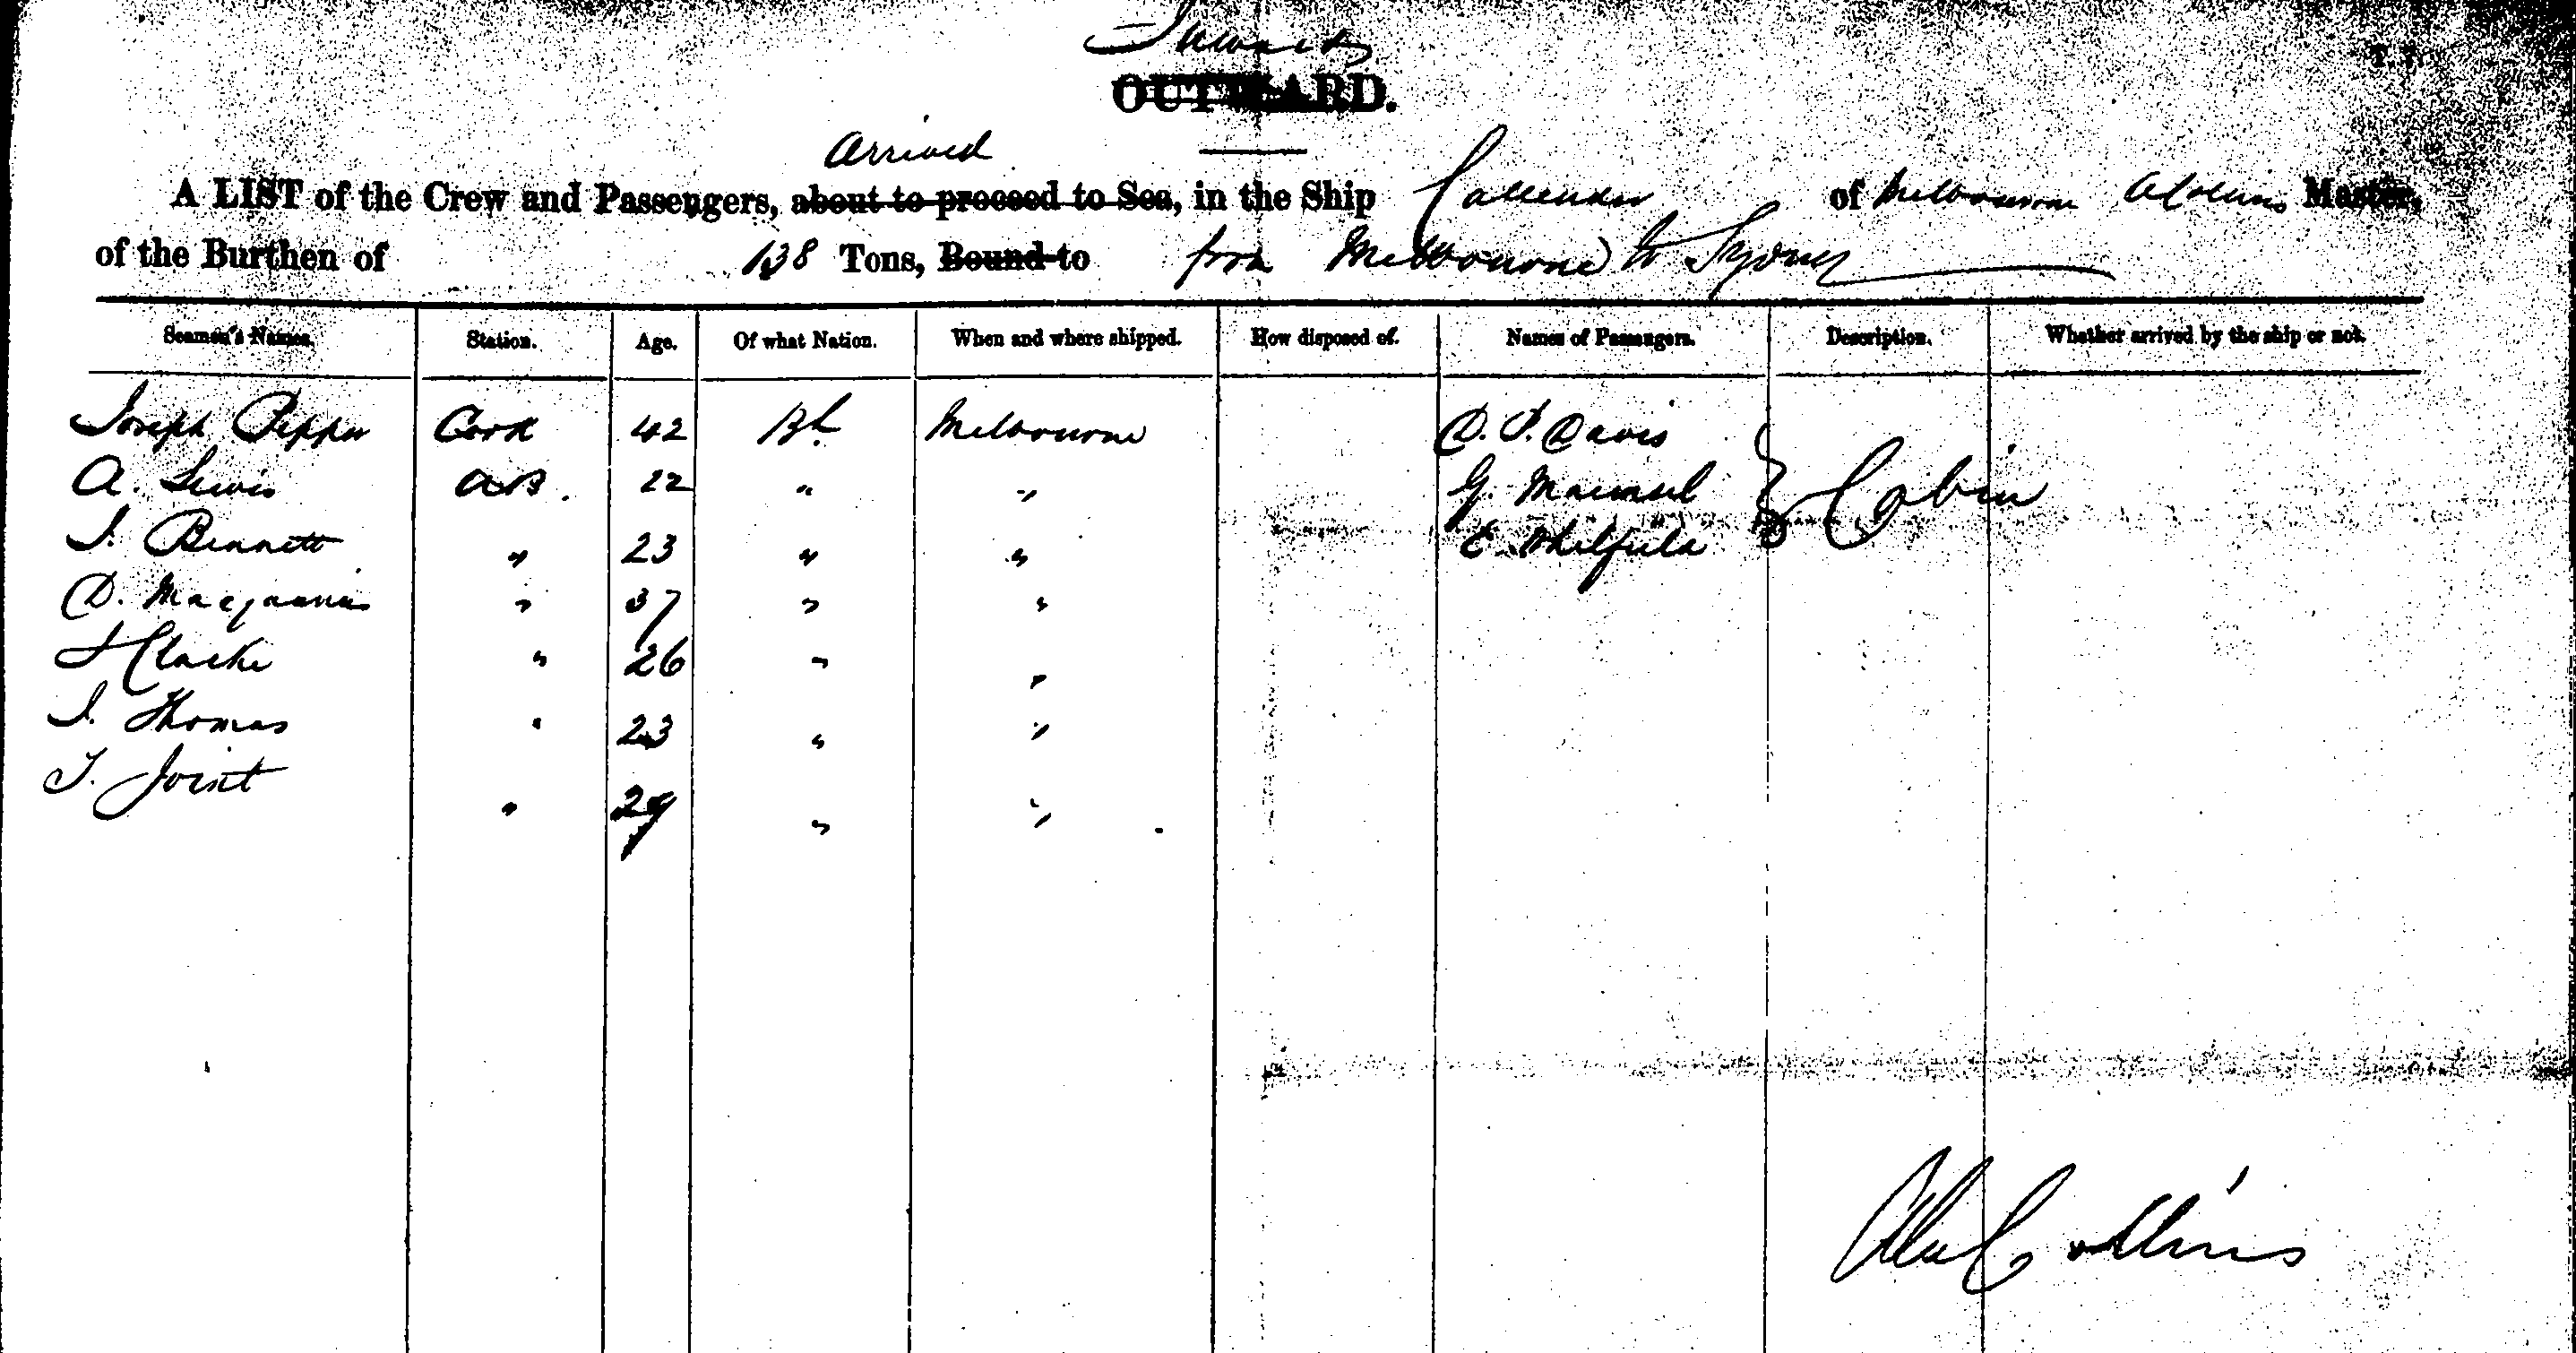 Inwards
OUTWARD.
arrived
A LIST of the Crew and Passengers, about to proceed to Sea, in the Ship Callender of Melbourne A Collins Master,
of the Burthen of 138 Tons, Bound to from Melbourne to Sydney
Seamen's Names. Station. Age. Of what Nation. When and where shipped. How disposed of. Names of Passengers. Description. Whether arrived by the ship or not.
Joseph Pepper Cook 42 Bh. Melbourne D. P. Davis
A. Lewis AB. 22 " " G. Cabin
J. Bennett " 23 " " E.
D. Macquarie " 37 " "
J Clarke " 26 " "
J. Thomas " 23 " "
T. Joint " 29 " "
Alex Collins